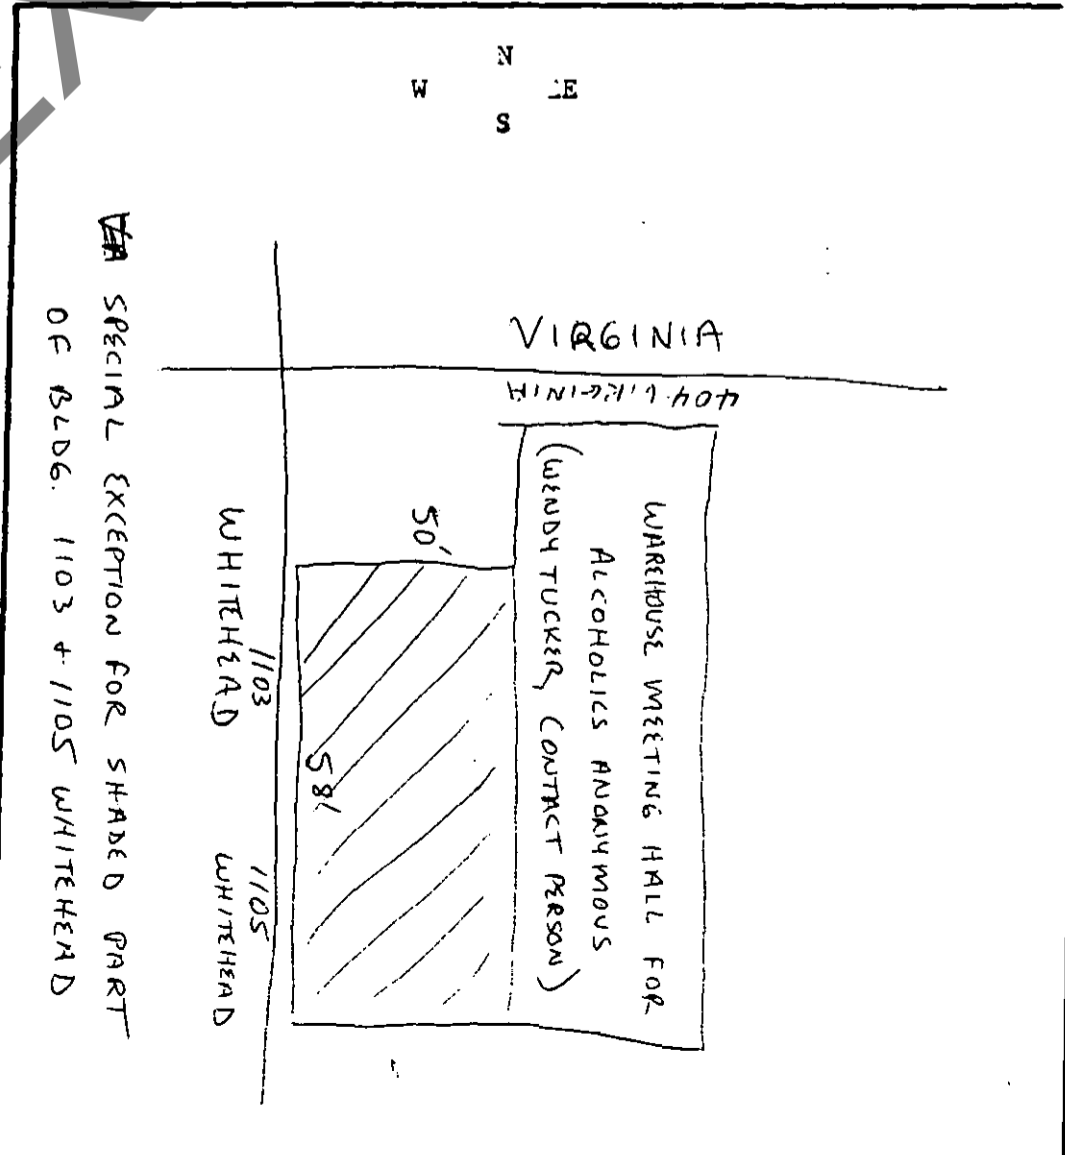 N
W E
S
VIRGINIA
404 VIRGINIA
WAREHOUSE MEETING HALL FOR
ALCOHOLICS ANONYMOUS
(WENDY TUCKER, CONTACT PERSON)
50'
58'
1103
WHITEHEAD
1105
WHITEHEAD
SPECIAL EXCEPTION FOR SHADED PART
OF BLDG. 1103 + 1105 WHITEHEAD